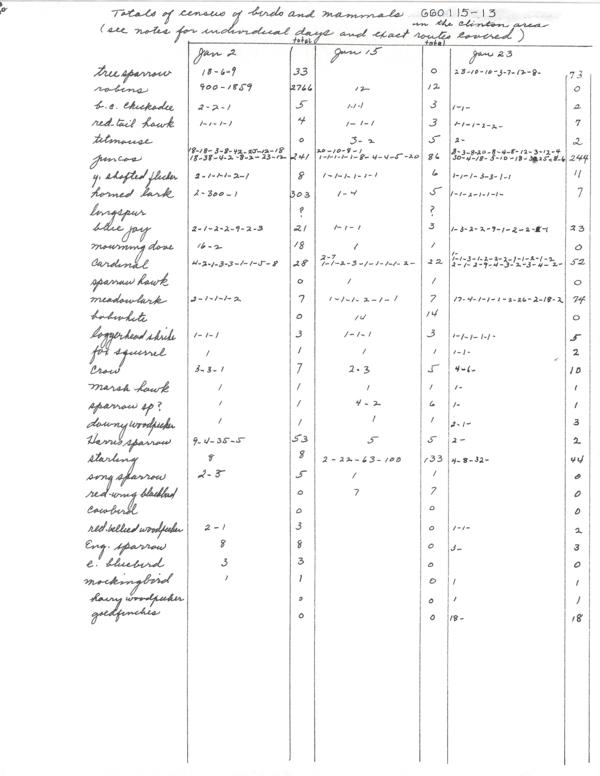 Totals of census of birds and mammals GGO115-13
in the Clinton area
(see notes for individual days and exact routes covered)
Jan 2 total Jan 15 total Jan 23
tree sparrow 18-6-9 33 0 23-10-10-3-7-12-8- 73
robins 900-1859 2766 12 12 0
b.c. chickadee 2-2-1 5 1-1-1 3 1-1- 2
red-tail hawk 1-1-1-1 4 1-1-1 3 1-1-1-2-2- 7
titmouse 0 3-2 5 2- 2
juncos 241 86 244
y. shafted flicker 2-1-1-1-2-1 8 1-1-1-1-1-1 6 1-1-1-3-3-1-1 11
horned lark 2-300-1 303 1-4 5 1-1-2-1-1-1- 7
longspur ? ?
blue jay 2-1-2-2-9-2-3 21 1-1-1 3 23
mourning dove 16-2 18 1 1 0
Cardinal 4-2-1-3-3-1-1-5-8 28 22 52
sparrow hawk 0 1 1 0
meadowlark 2-1-1-1-2 7 1-1-1-2-1-1 7 17-4-1-1-1-2-26-2-18-2 74
bobwhite 0 14 14 0
loggerhead shrike 1-1-1 3 1-1-1 3 1-1-1-1-1- 5
fox squirrel 1 1 1 1 1-1- 2
Crow 3-3-1 7 2-3 5 4-6- 10
marsh hawk 1 1 1 1 1- 1
sparrow sp? 1 1 4-2 6 1- 1
downy woodpecker 1 1 1 1 2-1- 3
Harris sparrow 9-4-35-5 53 5 5 2- 2
starling 8 8 2-22-63-100 133 4-8-32- 44
song sparrow 2-3 5 1 1 0
red-wing blackbird 0 7 7 0
Cowbird 0 0 0
red-bellied woodpecker 2-1 3 0 1-1- 2
Eng. sparrow 8 8 0 3- 3
e. bluebird 3 3 0 0
mockingbird 1 1 0 1 1
hairy woodpecker 0 0 1 1
goldfinches 0 0 18- 18